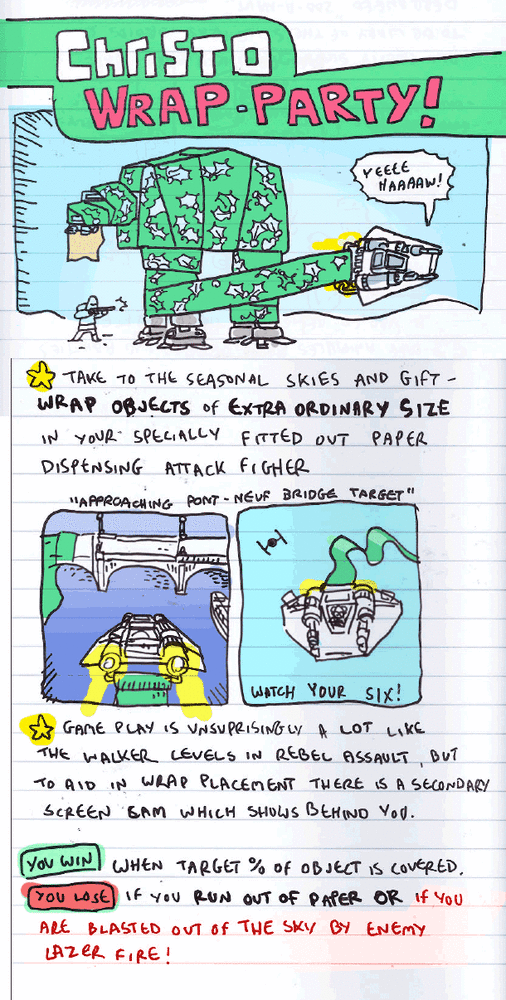 CHRISTO
WRAP-PARTY!
YEEEE
HAAAAW!
TAKE TO THE SEASONAL SKIES AND GIFT-
WRAP OBJECTS of EXTRA ORDINARY SIZE
IN YOUR SPECIALLY FITTED OUT PAPER
DISPENSING ATTACK FIGHER
"APPROACHING PONT-NEUF BRIDGE TARGET"
WATCH YOUR SIX!
GAME PLAY IS UNSUPRISINGLY A LOT LIKE
THE WALKER LEVELS IN REBEL ASSAULT, BUT
TO AID IN WRAP PLACEMENT THERE IS A SECONDARY
SCREEN CAM WHICH SHOWS BEHIND YOU.
YOU WIN WHEN TARGET % OF OBJECT IS COVERED.
YOU LOSE IF YOU RUN OUT OF PAPER OR IF YOU
ARE BLASTED OUT OF THE SKY BY ENEMY
LAZER FIRE!